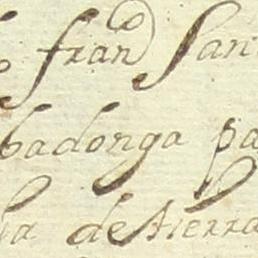 fran^do San
badonga pa
ia de tierra